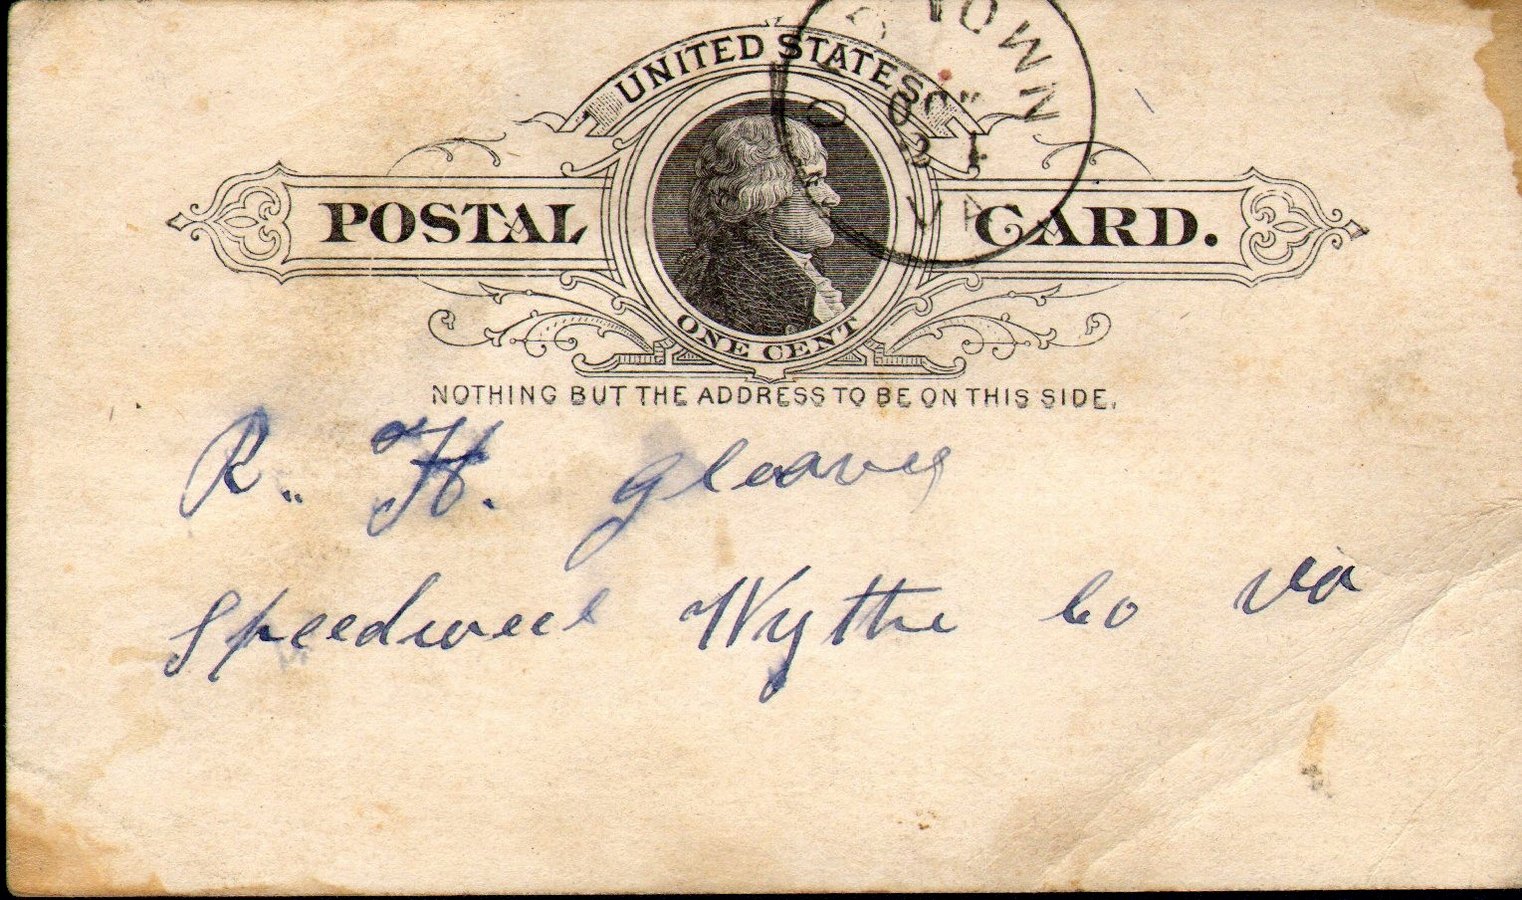 UNITED STATES
POSTAL CARD.
ONE CENT
NOTHING BUT THE ADDRESS TO BE ON THIS SIDE.
TOWN
OCT
21
VA
R. H. Gleaves
Speedwell Wythe Co Va